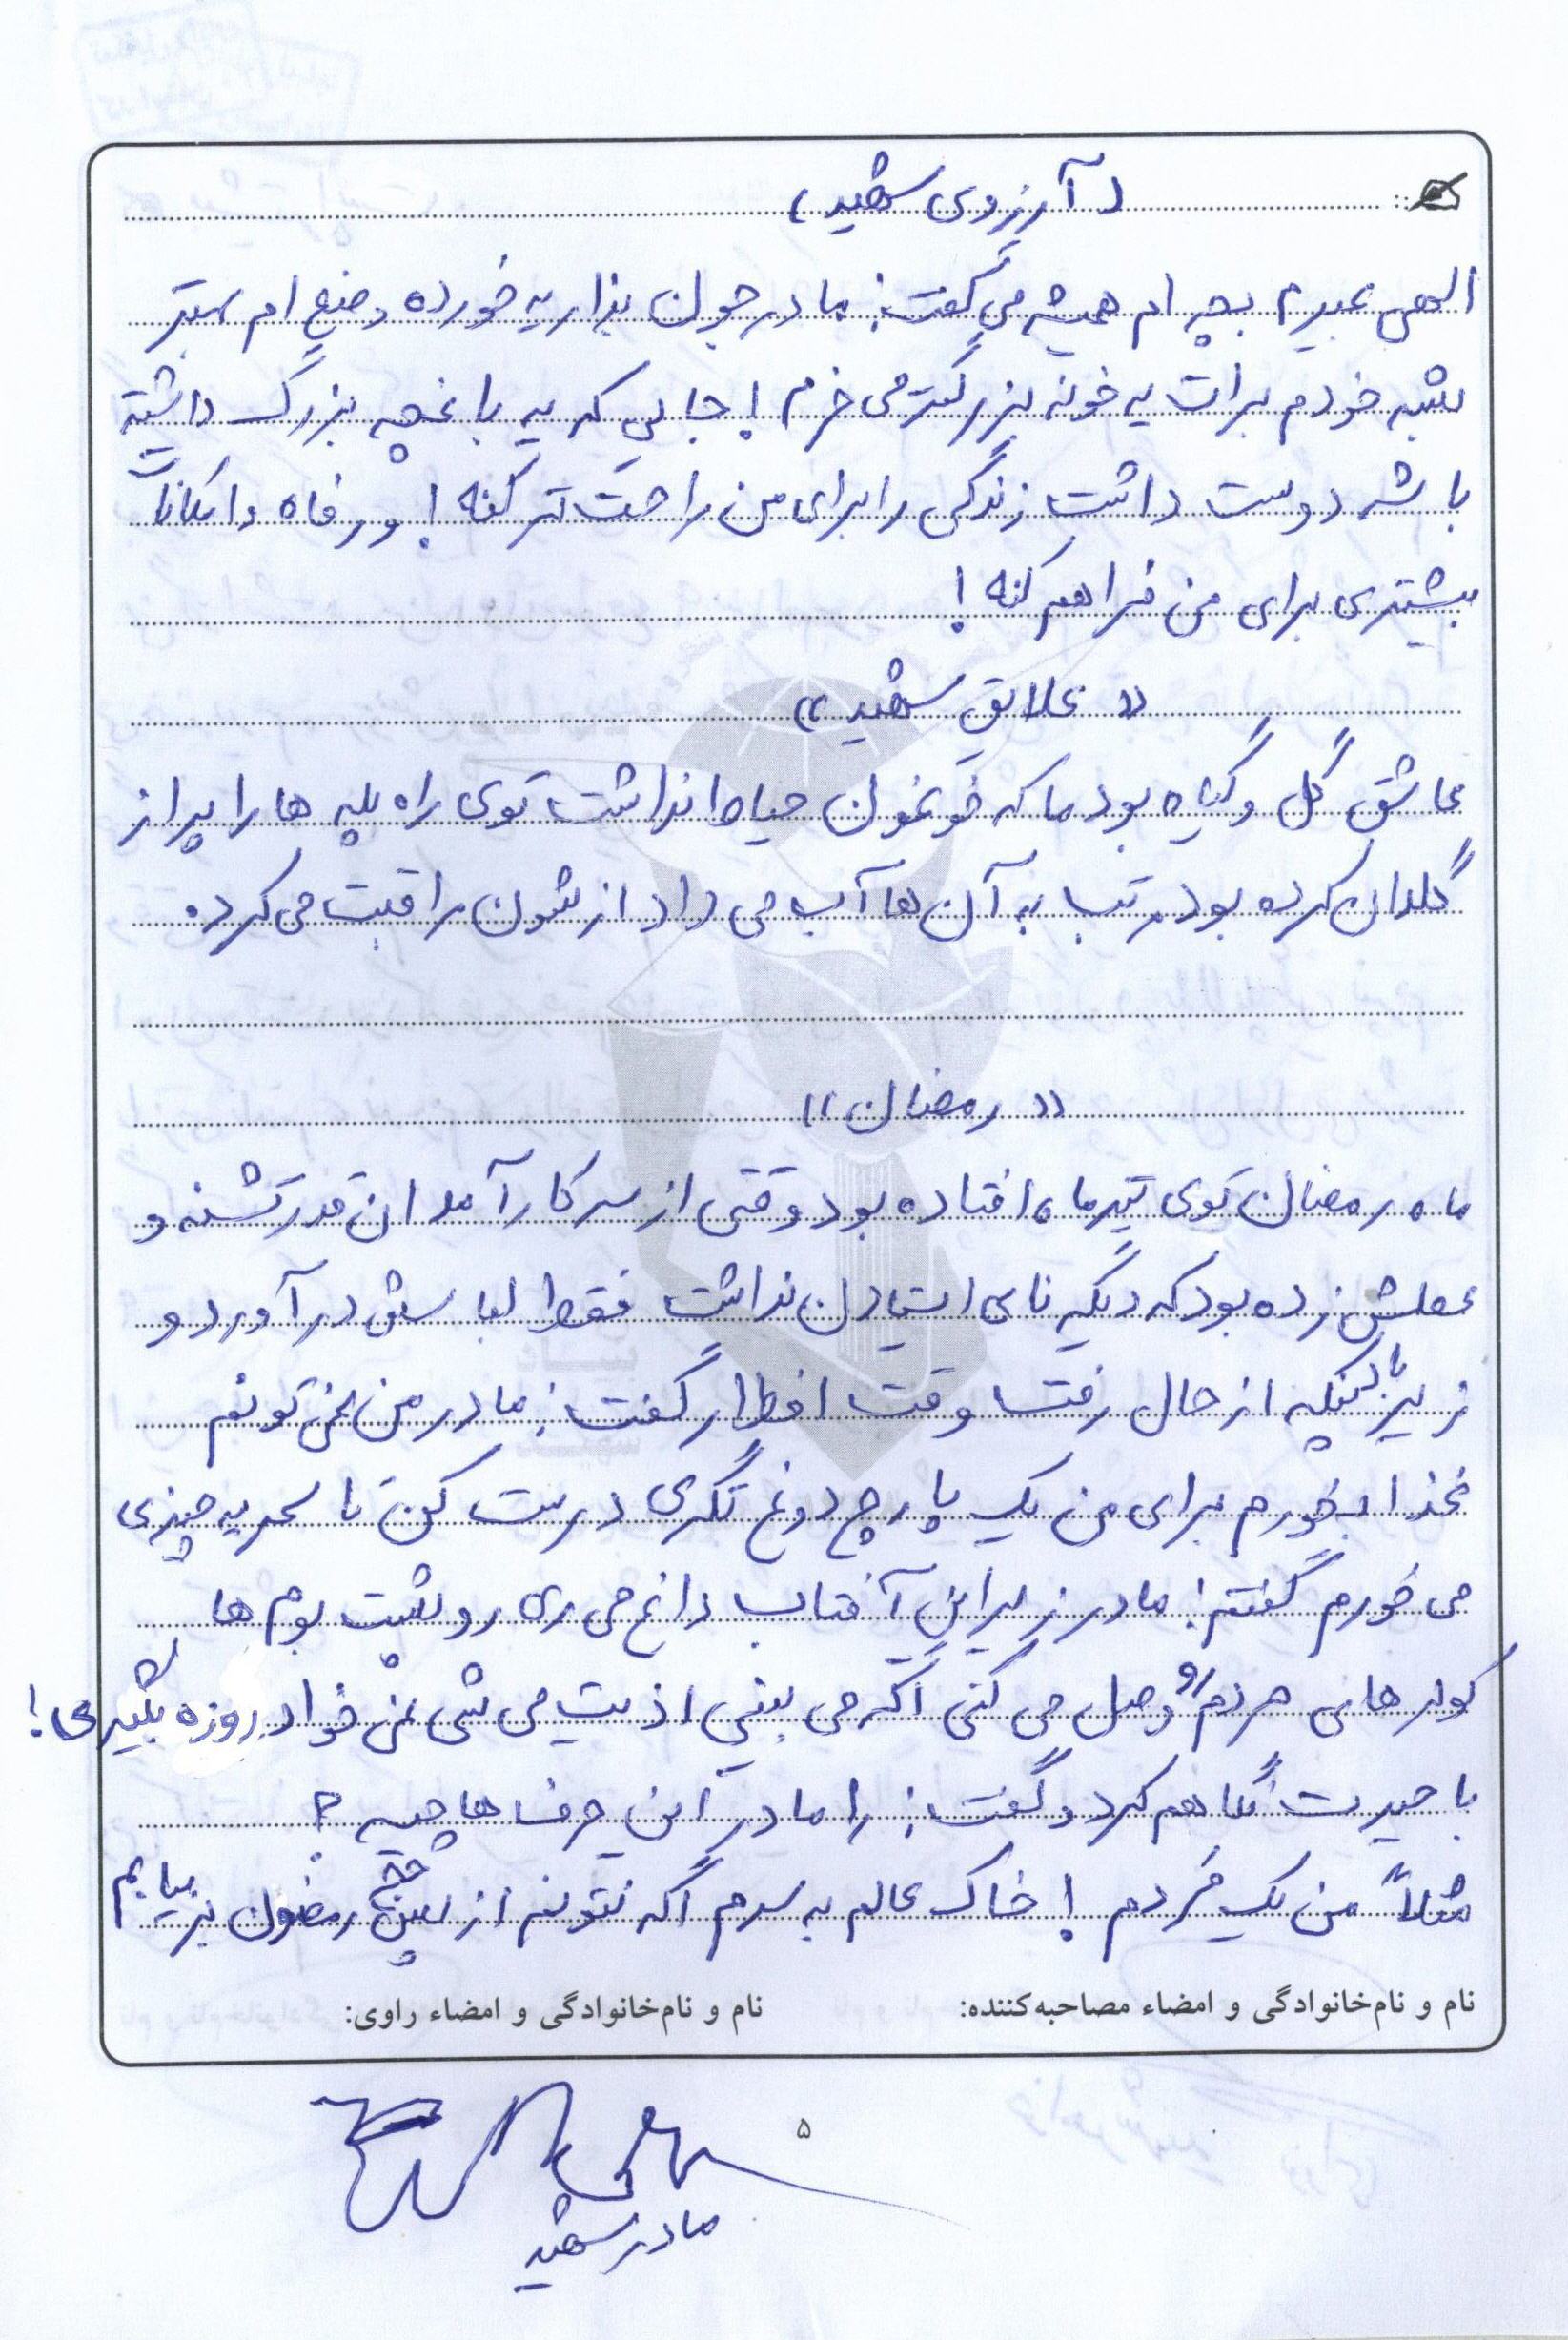 (آرزوی شهید)
الهی بمیرم بچه ام همیشه می گفت: مادر جون بذار یه خورده وضع ام بهتر
بشه خودم برات یه خونه بزرگتر می خرم! جایی که یه باغچه بزرگ داشته
باشه دوست داشت زندگی را برای من راحت تر کنه! و رفاه و امکانات
بیشتری برای من فراهم کنه!
«علایق شهید»
عاشق گل و گیاه بود ما که خونمون حیاط نداشت توی راه پله ها را پر از
گلدان کرده بود مرتب به آن ها آب می داد ازشون مراقبت می کرد.
«رمضان»
ماه رمضان توی تیرماه افتاده بود وقتی از سر کار آمد ان قدر تشنه و
عطش زده بود که دیگه نای ایستادن نداشت فقط لباسش در آورد و
زیر پنکه از حال رفت وقت افطار گفت: مادر من نمی تونم
غذا بخورم برای من یک پارچ دوغ تگری درست کن تا سحر یه چیزی
می خورم گفتم: مادر زیر این آفتاب داغ می ری رو پشت بوم ها
کولر های مردم رو وصل می کنی اگه می بینی اذیت می شی نمی خواد روزه بگیری!
با حیرت نگاهم کرد و گفت: مادر این حرف ها چیه؟
مثلاً من یک مَردم! خاک عالم به سرم اگه نتونم از پس رمضون بر بیایم
نام و نام‌خانوادگی و امضاء مصاحبه‌کننده:
نام و نام‌خانوادگی و امضاء راوی:
۵
مادر شهید